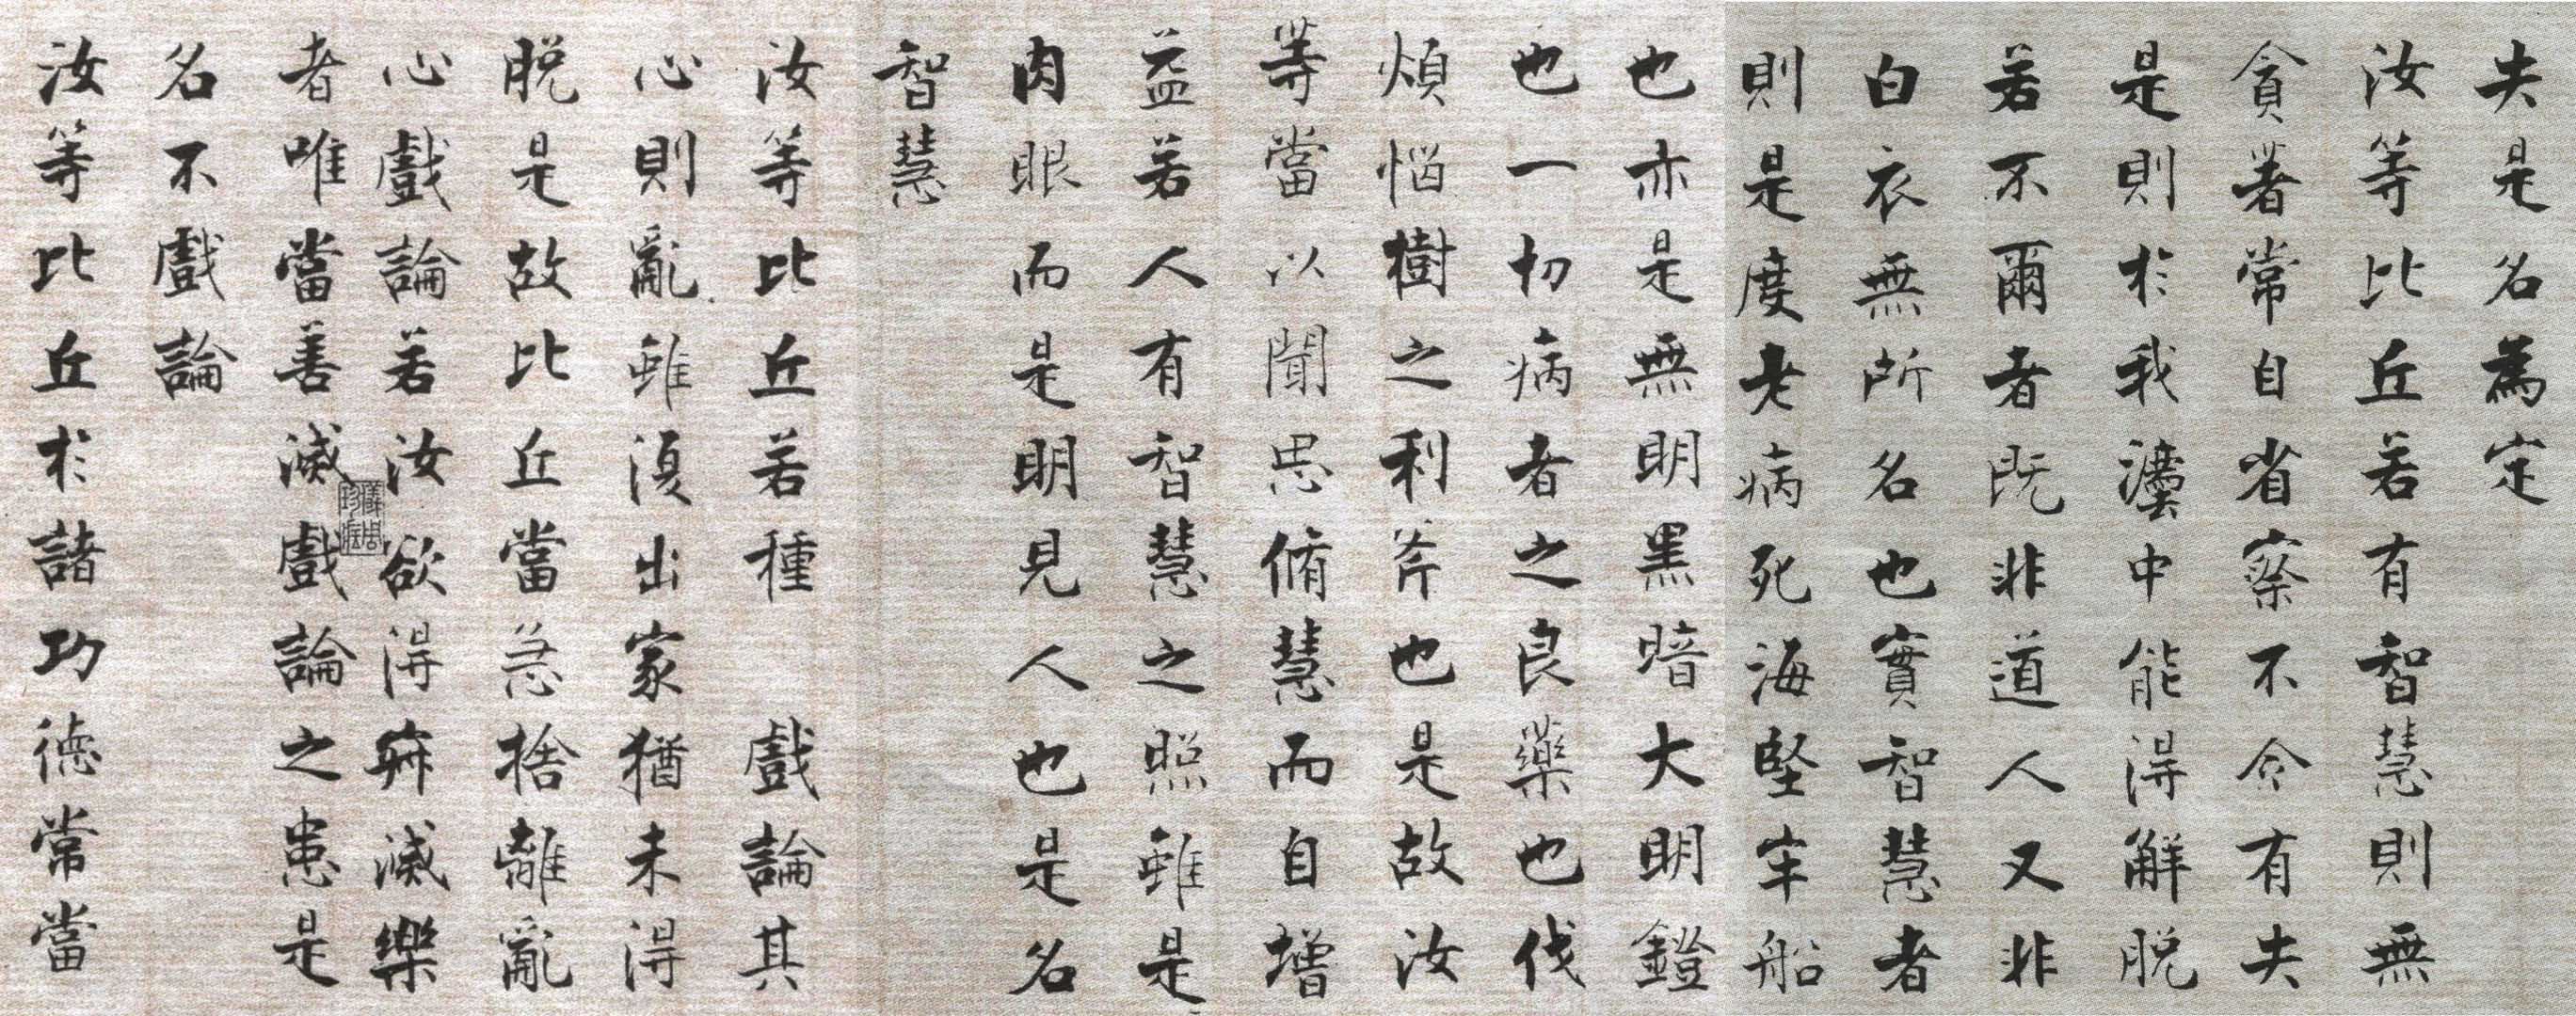 失是名為定
汝等比丘若有智慧則無
貪著常自省察不令有失
是則於我灋中能得解脫
若不爾者既非道人又非
白衣無所名也實智慧者
則是度老病死海堅牢船
也亦是無明黑暗大明鐙
也一切病者之良藥也伐
煩惱樹之利斧也是故汝
等當以聞思脩慧而自增
益若人有智慧之照雖是
肉眼而是明見人也是名
智慧
汝等比丘若種 戲論其
心則亂雖復出家猶未得
脫是故比丘當急捨離亂
心戲論若汝欲得寂滅樂
者唯當善滅戲論之患是
名不戲論
汝等比丘於諸功德常當
儀周珍藏